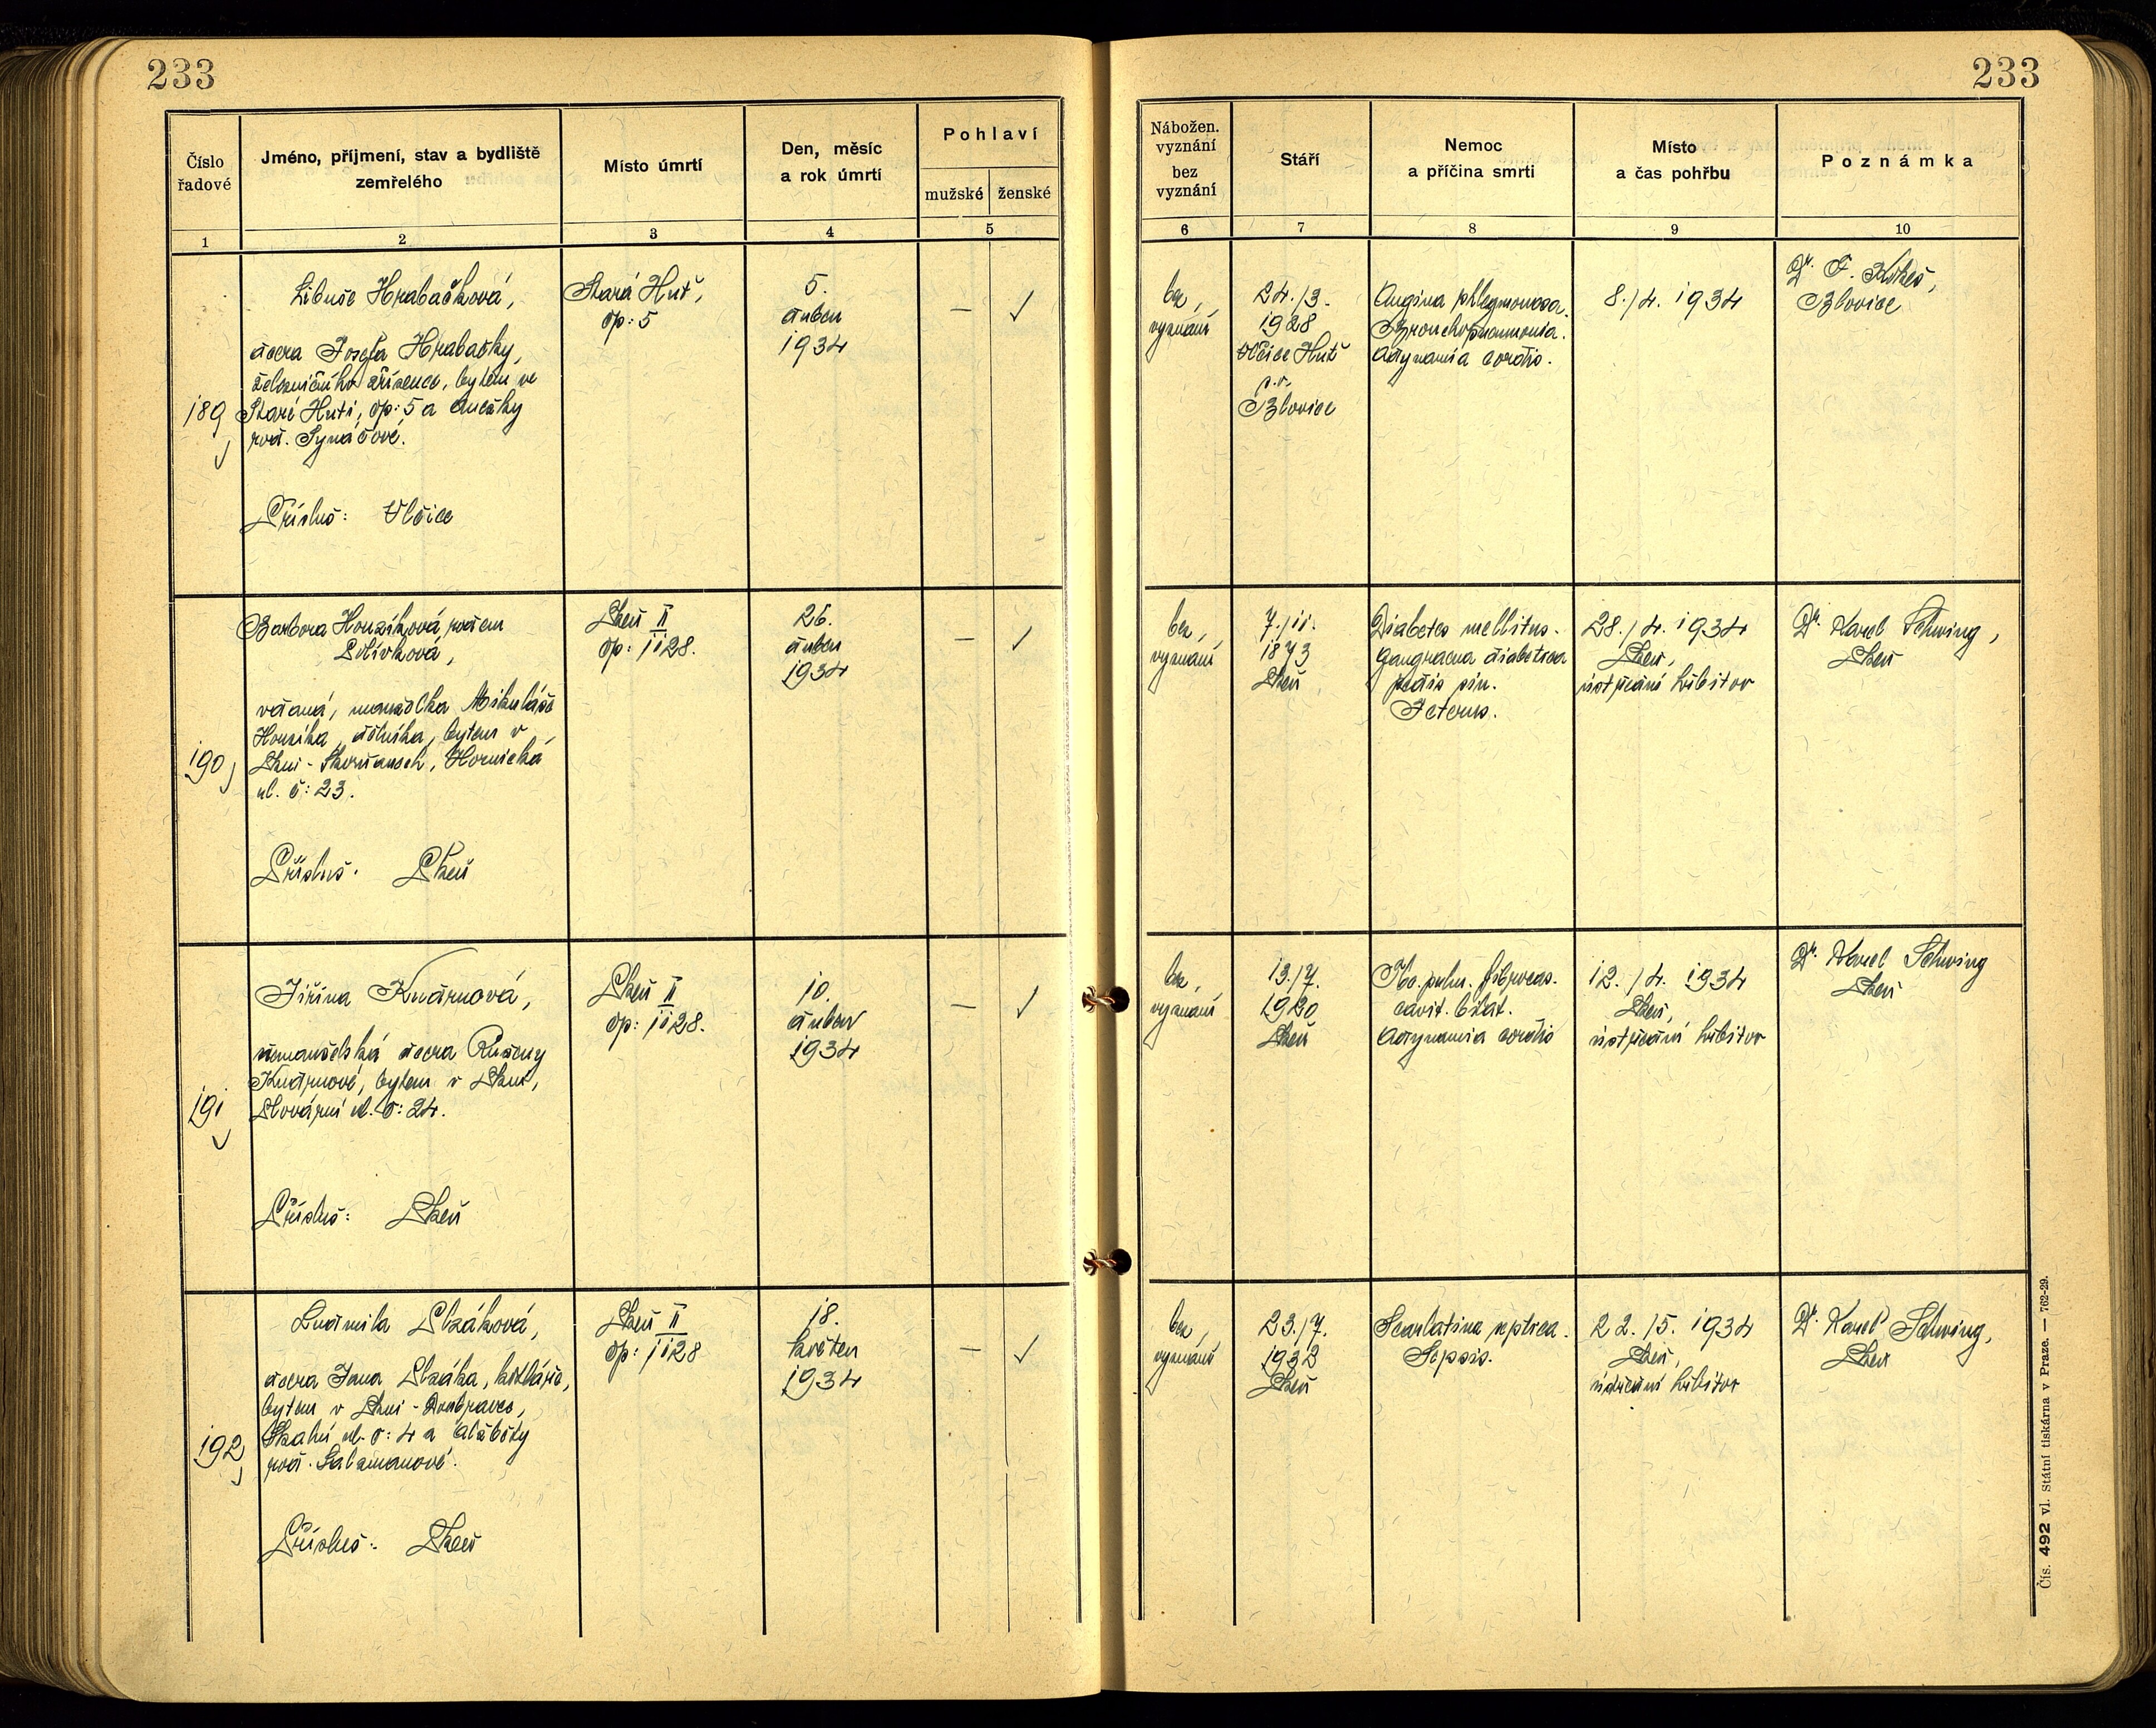 233
233
Číslo řadové
Jméno, příjmení, stav a bydliště zemřelého
Místo úmrtí
Den, měsíc a rok úmrtí
Pohlaví
mužské
ženské
Nábožen. vyznání
bez vyznání
Stáří
Nemoc a příčina smrti
Místo a čas pohřbu
Poznámka
1
2
3
4
5
6
7
8
9
10
189
Libuše Hrabačková,
dcera Josefa Hrabačky,
železničního zřízence, bytem ve
Staré Huti, čp: 5 a Anežky
roz.
Přísluš: Vlčice
Stará Huť,
čp: 5
5.
duben
1934
—
✓
bez
vyznání
24./3.
1928
Vlčice Huť
Blovice
Angina phlegmonosa.
Bronchopneumonia.
Adynamia cordis.
8./4. 1934
Dr. F.
Blovice
190
Barbora Honzíková, rozen
vdaná, manželka Mikuláše
Honzíka, dělníka, bytem v
Plzni - Skvrňanech, Hornická
ul. č: 23.
Přísluš: Plzeň
Plzeň II
čp: 1128.
26.
duben
1934
—
✓
bez
vyznání
7./11.
1873
Plzeň
Diabetes mellitus.
Gangraena diabetica
pedis sin.
Icterus.
28./4. 1934
Plzeň,
ústřední hřbitov
Dr. Karel Schwing,
Plzeň
191
Jiřina
nemanželská dcera Růženy
bytem v Plzni,
ul. č: 24.
Přísluš: Plzeň
Plzeň II
čp: 1128.
10.
duben
1934
—
✓
bez
vyznání
13./7.
1920
Plzeň
Tbc. pulm. fibrocas.
cavit. bilat.
Adynamia cordis
12./4. 1934
Plzeň,
ústřední hřbitov
Dr. Karel Schwing
Plzeň
192
Ludmila Slzáková,
dcera Jana Slzáka, kotláře,
bytem v Plzni - Doubravce,
ul. č: 4 a Alžběty
roz. Salzmanové.
Přísluš: Plzeň
Plzeň II
čp: 1128
18.
květen
1934
—
✓
bez
vyznání
23./7.
1932
Plzeň
Scarlatina septica.
Sepsis.
22./5. 1934
Plzeň,
ústřední hřbitov
Dr. Karel Schwing,
Plzeň
Čís. 492 vl. Státní tiskárna v Praze. — 762-29.